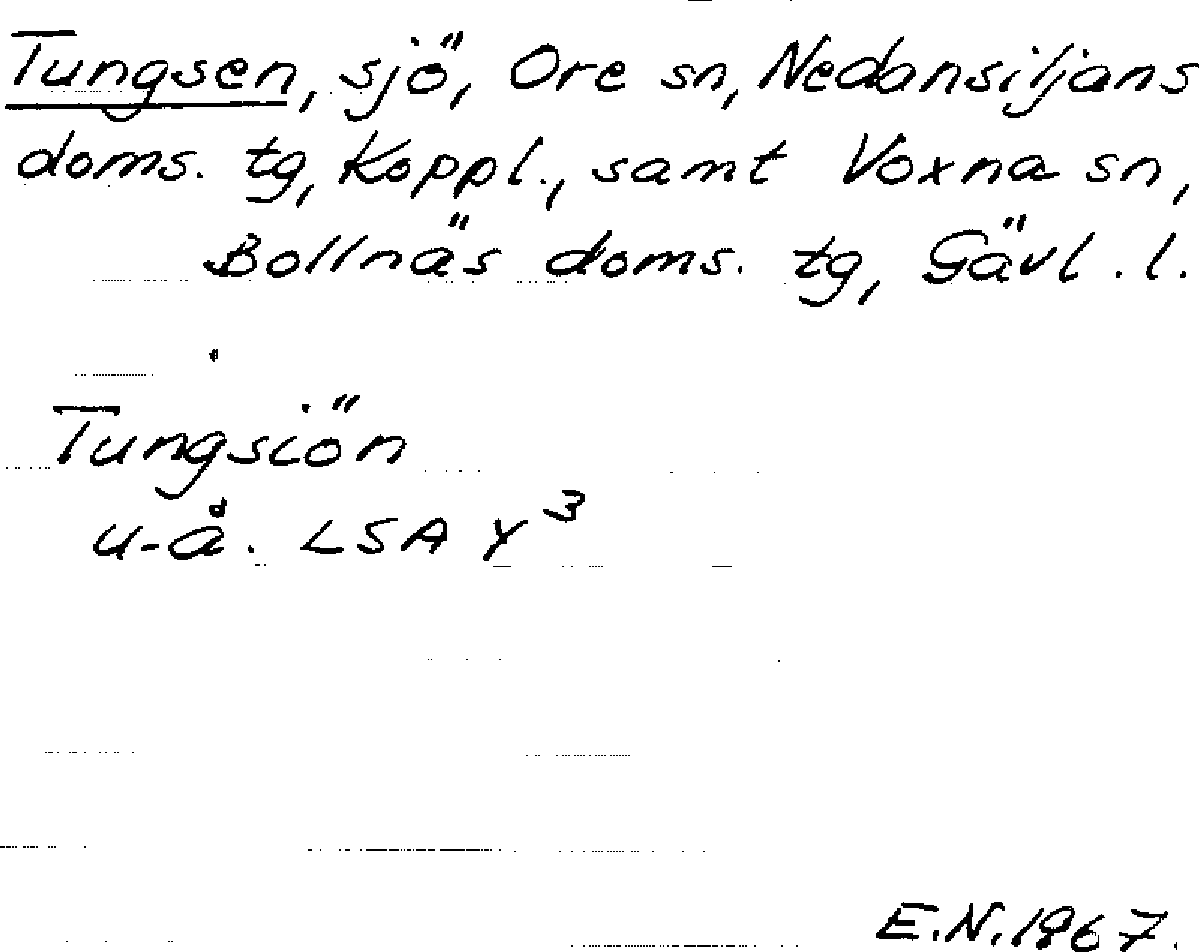 Tungsen, sjö, Ore sn, Nedansiljans
doms. tg, Koppl., samt Voxna sn,
Bollnäs doms. tg, Gävl. l.
Tungsiön
u-å. LSA Y³
E.N. 1967.